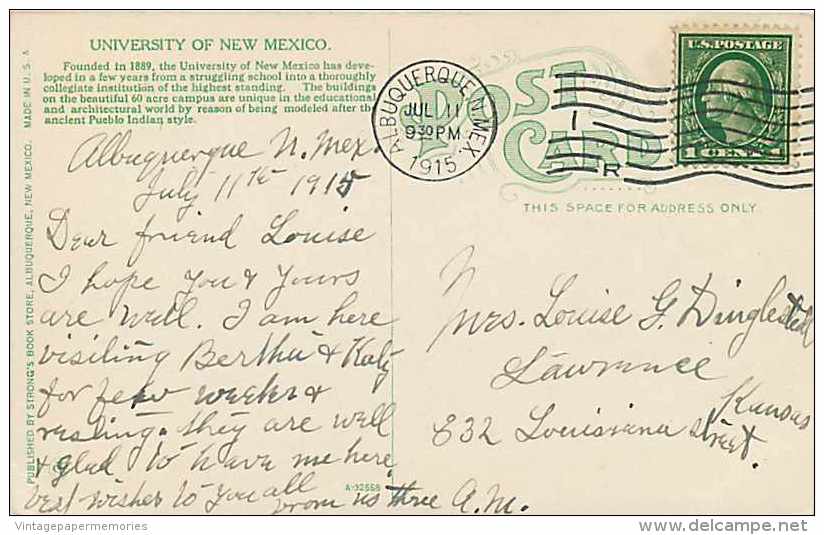 UNIVERSITY OF NEW MEXICO.
Founded in 1889, the University of New Mexico has deve-
loped in a few years from a struggling school into a thoroughly
collegiate institution of the highest standing. The buildings
on the beautiful 60 acre campus are unique in the educational
and architectural world by reason of being modeled after the
ancient Pueblo Indian style.
MADE IN U. S. A
PUBLISHED BY STRONG'S BOOK STORE, ALBUQUERQUE, NEW MEXICO.
Albuquerque N. Mex.
July 11th 1915
Dear friend Louise
I hope you & yours
are well. I am here
visiting Bertha & Katy
for few weeks &
resting. they are well
& glad to have me here,
best wishes to you all
from us three A.M.
A-32558
ALBUQUERQUE N. MEX.
JUL 11
930 PM
1915
POST
CARD
1
R
U.S. POSTAGE
1 CENT 1
THIS SPACE FOR ADDRESS ONLY.
Mrs. Louise G. Dinglestedt
Lawrence
Kansas
832 Louisiana street.
Vintagepapermemories
delcampe.net